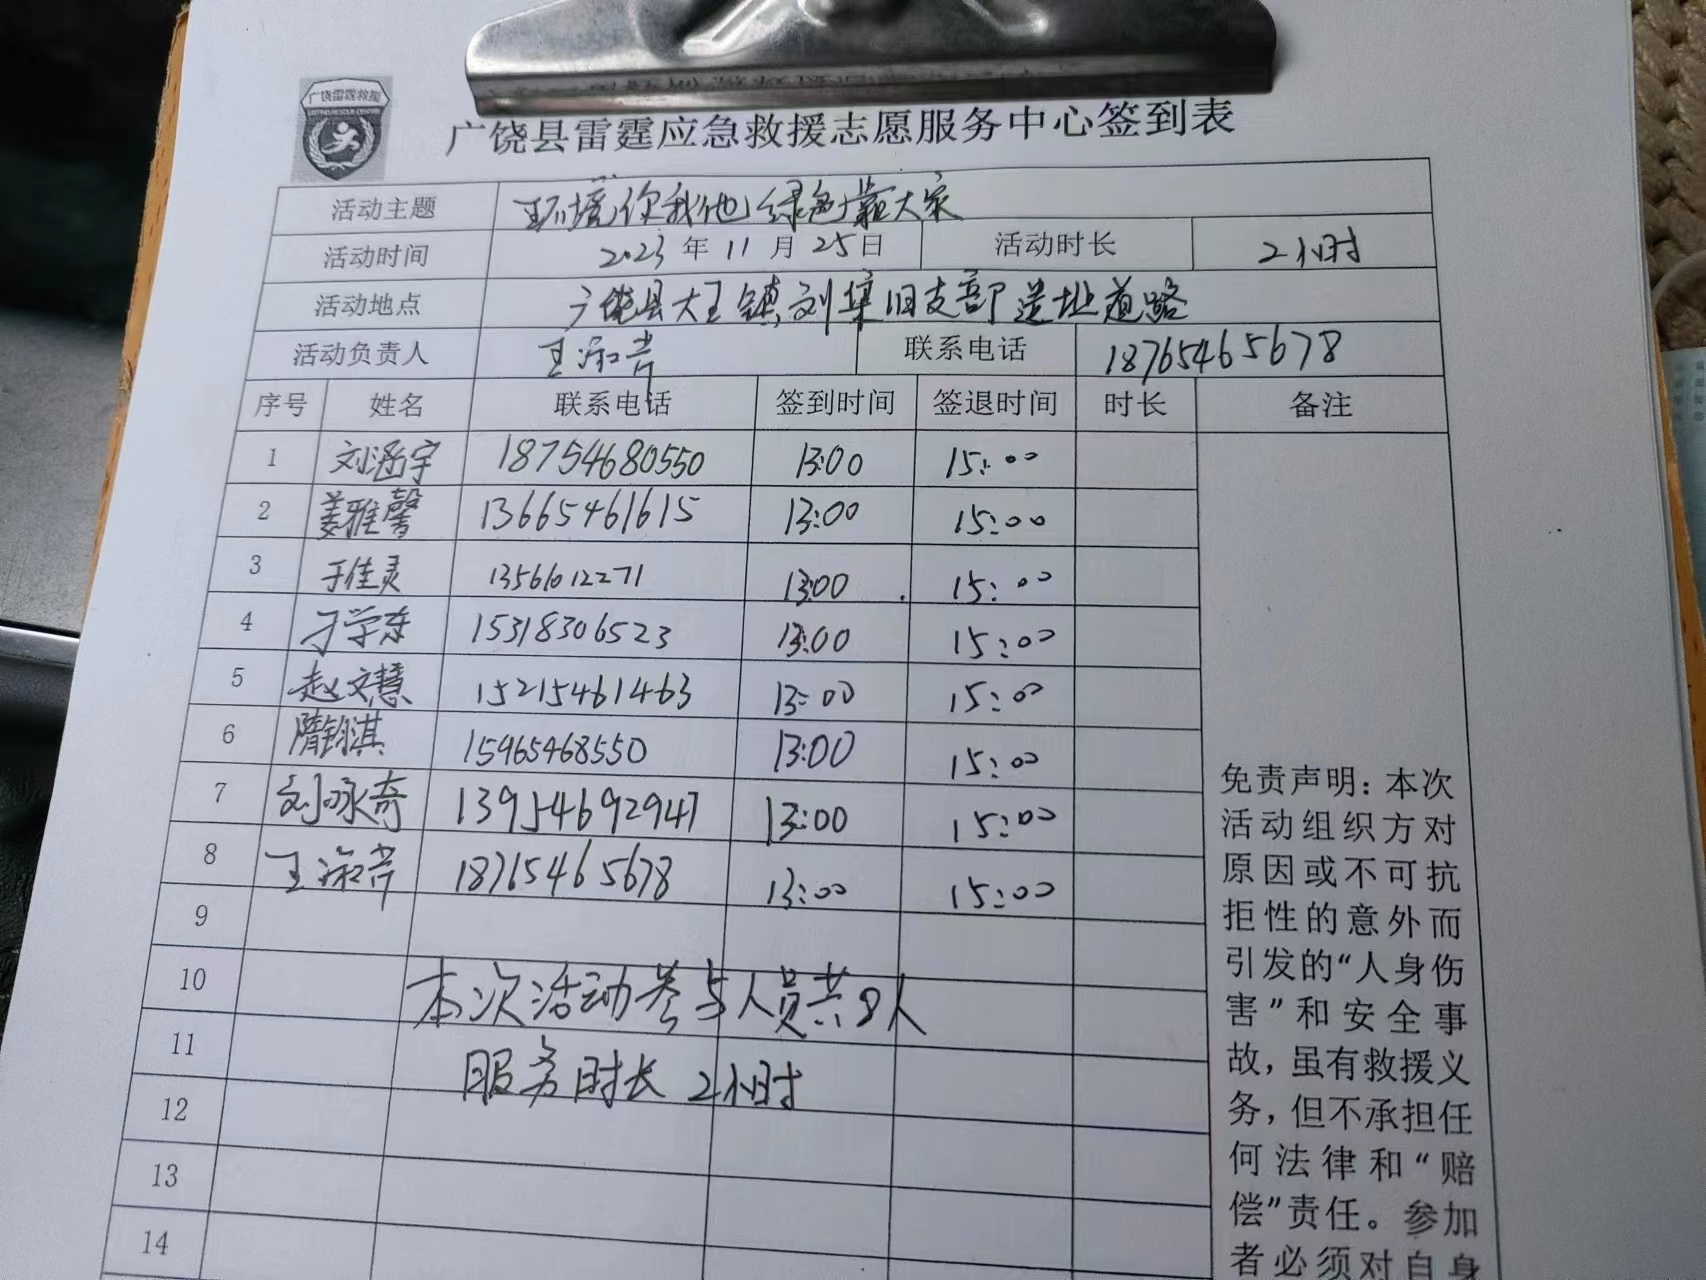 广饶雷霆救援
广饶县雷霆应急救援志愿服务中心签到表
活动主题 环境你我他 绿色靠大家
活动时间 2023年11月25日 活动时长 2小时
活动地点 广饶县大王镇刘集旧支部遗址道路
活动负责人 王淑芹 联系电话 18765465678
序号 姓名 联系电话 签到时间 签退时间 时长 备注
1 刘涵宇 18754680550 13:00 15:00
2 姜雅馨 13665461615 13:00 15:00
3 于佳灵 13561012271 13:00 15:00
4 刁学东 15318306523 13:00 15:00
5 赵文慧 15215461463 13:00 15:00
6 隋钧淇 15965468550 13:00 15:00
7 刘咏奇 13954692947 13:00 15:00
8 王淑芹 18765465678 13:00 15:00
9
10
11
12
13
14
本次活动参与人员共8人
服务时长 2小时
免责声明：本次
活动组织方对
原因或不可抗
拒性的意外而
引发的“人身伤
害”和安全事
故，虽有救援义
务，但不承担任
何法律和“赔
偿”责任。参加
者必须对自身